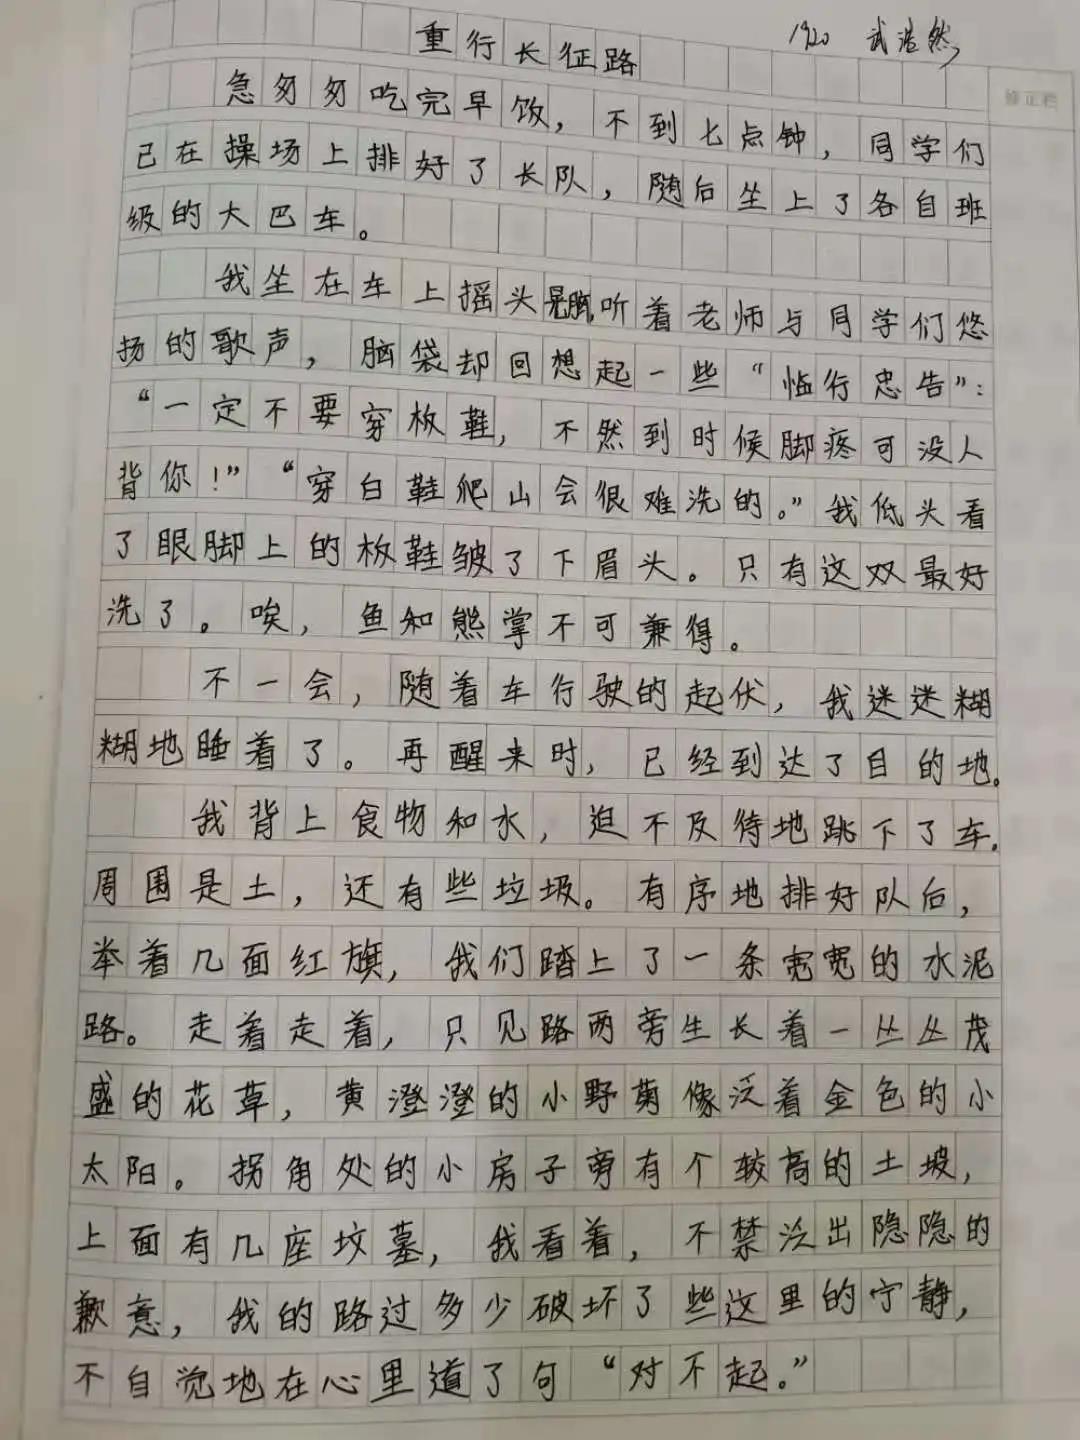 重行长征路 1920 武浩然
修正栏
急匆匆吃完早饭，不到七点钟，同学们
已在操场上排好了长队，随后坐上了各自班
级的大巴车。
我坐在车上摇头晃脑,听着老师与同学们悠
扬的歌声，脑袋却回想起一些“临行忠告”：
“一定不要穿板鞋，不然到时候脚疼可没人
背你！”“穿白鞋爬山会很难洗的。”我低头看
了眼脚上的板鞋皱了下眉头。只有这双最好
洗了。唉，鱼和熊掌不可兼得。
不一会，随着车行驶的起伏，我迷迷糊
糊地睡着了。再醒来时，已经到达了目的地。
我背上食物和水，迫不及待地跳下了车。
周围是土，还有些垃圾。有序地排好队后，
举着几面红旗，我们踏上了一条宽宽的水泥
路。走着走着，只见路两旁生长着一丛丛茂
盛的花草，黄澄澄的小野菊像泛着金色的小
太阳。拐角处的小房子旁有个较高的土坡，
上面有几座坟墓，我看着，不禁泛出隐隐的
歉意，我的路过多少破坏了些这里的宁静，
不自觉地在心里道了句“对不起。”